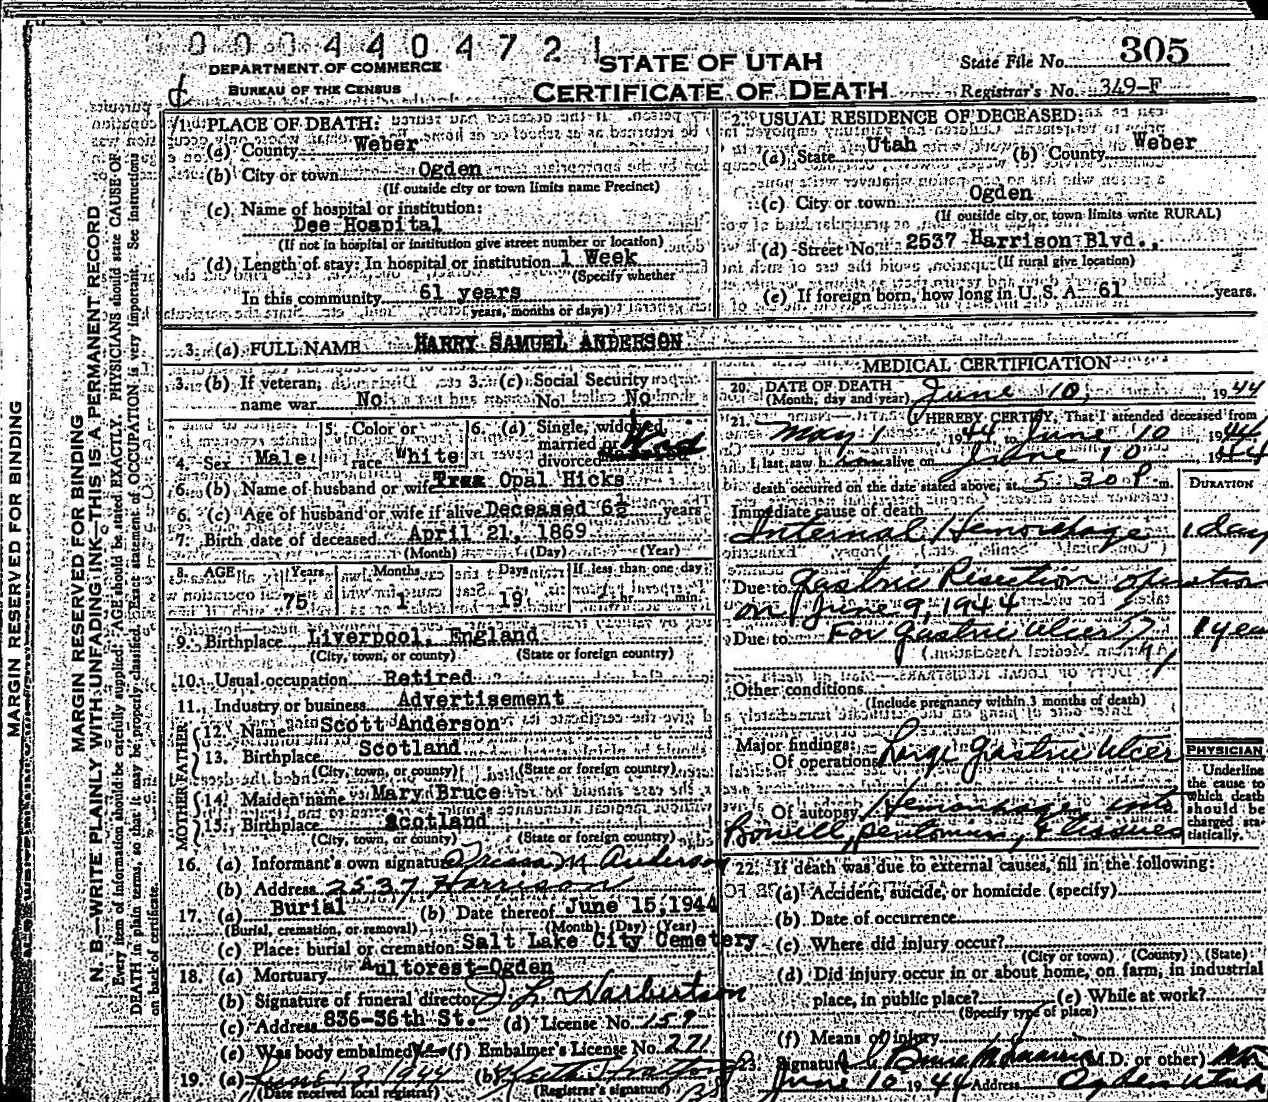 000440472 1
DEPARTMENT OF COMMERCE
BUREAU OF THE CENSUS
STATE OF UTAH
CERTIFICATE OF DEATH
State File No. 305
Registrar's No. 349-F
MARGIN RESERVED FOR BINDING
MARGIN RESERVED FOR BINDING
N. B.—WRITE PLAINLY WITH UNFADING INK—THIS IS A PERMANENT RECORD
Every item of information should be carefully supplied. AGE should be stated EXACTLY. PHYSICIANS should state CAUSE OF
DEATH in plain terms, so that it may be properly classified. Exact statement of OCCUPATION is very important. See instructions
on back of certificate.
1. PLACE OF DEATH:
(a) County Weber
(b) City or town Ogden
(If outside city or town limits name Precinct)
(c) Name of hospital or institution:
Dee Hospital
(If not in hospital or institution give street number or location)
(d) Length of stay: In hospital or institution 1 Week
(Specify whether
In this community 61 years
years, months or days)
2. USUAL RESIDENCE OF DECEASED:
(a) State Utah (b) County Weber
(c) City or town Ogden
(If outside city or town limits write RURAL)
(d) Street No. 2537 Harrison Blvd.,
(If rural give location)
(e) If foreign born, how long in U. S. A. 61 years.
3. (a) FULL NAME HARRY SAMUEL ANDERSON
3. (b) If veteran, name war No
3. (c) Social Security No. No
4. Sex Male
5. Color or race White
6. (a) Single, widowed, married or divorced Wid
6. (b) Name of husband or wife Opal Hicks
6. (c) Age of husband or wife if alive Deceased years
7. Birth date of deceased April 21, 1869
(Month) (Day) (Year)
8. AGE Years Months Days If less than one day
75 1 19 hr. min.
9. Birthplace Liverpool, England
(City, town, or county) (State or foreign country)
10. Usual occupation Retired
11. Industry or business Advertisement
FATHER
12. Name Scott Anderson
13. Birthplace Scotland
(City, town, or county) (State or foreign country)
MOTHER
14. Maiden name Mary Bruce
15. Birthplace Scotland
(City, town, or county) (State or foreign country)
16. (a) Informant's own signature M Anderson
(b) Address 2537 Harrison
17. (a) Burial (b) Date thereof June 15, 1944
(Burial, cremation, or removal) (Month) (Day) (Year)
(c) Place: burial or cremation Salt Lake City Cemetery
18. (a) Mortuary Aultorest-Ogden
(b) Signature of funeral director
(c) Address 836-36th St. (d) License No. 159
(e) Was body embalmed Yes (f) Embalmer's License No. 271
19. (a) June 13 1944 (b)
(Date received local registrar) (Registrar's signature)
MEDICAL CERTIFICATION
20. DATE OF DEATH June 10, 1944
(Month, day and year)
21. I HEREBY CERTIFY, That I attended deceased from
May 1 1944 to June 10 1944
I last saw h im alive on June 10 1944
death occurred on the date stated above, at 5:30 P m.
DURATION
Immediate cause of death
Internal Hemorrhage 1 day
Due to Gastric Resection operation
on June 9, 1944
Due to For Gastric Ulcer 1 year
Other conditions
(Include pregnancy within 3 months of death)
Major findings:
Of operations Large Gastric Ulcer
Of autopsy Hemorrhage into
Bowell, & tissues
PHYSICIAN
Underline
the cause to
which death
should be
charged sta-
tistically.
22. If death was due to external causes, fill in the following:
(a) Accident, suicide, or homicide (specify)
(b) Date of occurrence
(c) Where did injury occur?
(City or town) (County) (State)
(d) Did injury occur in or about home, on farm, in industrial
place, in public place? (e) While at work?
(Specify type of place)
(f) Means of injury
23. Signature (M.D. or other)
June 10 1944 Address Ogden Utah